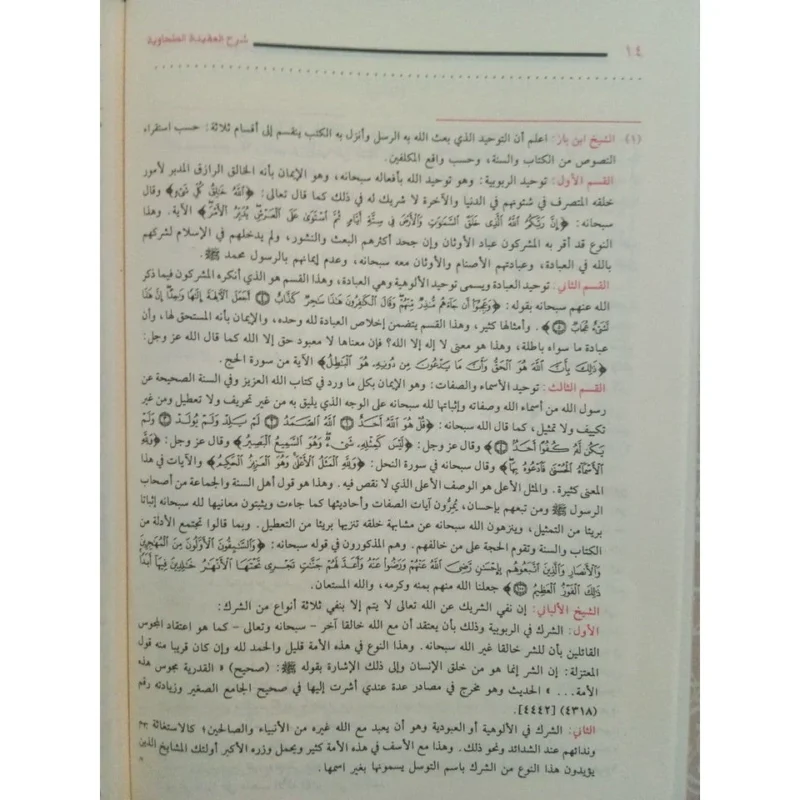 ١٤
شرح العقيدة الطحاوية
(١) الشيخ ابن باز: اعلم أن التوحيد الذي بعث الله به الرسل وأنزل به الكتب ينقسم إلى أقسام ثلاثة: حسب استقراء
النصوص من الكتاب والسنة، وحسب واقع المكلفين.
القسم الأول: توحيد الربوبية: وهو توحيد الله بأفعاله سبحانه، وهو الإيمان بأنه الخالق الرازق المدبر لأمور
خلقه المتصرف في شئونهم في الدنيا والآخرة لا شريك له في ذلك كما قال تعالى: ﴿ٱللَّهُ خَٰلِقُ كُلِّ شَىْءٍ﴾ وقال
سبحانه: ﴿إِنَّ رَبَّكُمُ ٱللَّهُ ٱلَّذِى خَلَقَ ٱلسَّمَٰوَٰتِ وَٱلْأَرْضَ فِى سِتَّةِ أَيَّامٍ ثُمَّ ٱسْتَوَىٰ عَلَى ٱلْعَرْشِ يُدَبِّرُ ٱلْأَمْرَ﴾ الآية. وهذا
النوع قد أقر به المشركون عباد الأوثان وإن جحد أكثرهم البعث والنشور، ولم يدخلهم في الإسلام لشركهم
بالله في العبادة، وعبادتهم الأصنام والأوثان معه سبحانه، وعدم إيمانهم بالرسول محمد ﷺ.
القسم الثاني: توحيد العبادة ويسمى توحيد الألوهية وهي العبادة، وهذا القسم هو الذي أنكره المشركون فيما ذكر
الله عنهم سبحانه بقوله: ﴿وَعَجِبُوٓا۟ أَن جَآءَهُم مُّنذِرٌ مِّنْهُمْ وَقَالَ ٱلْكَٰفِرُونَ هَٰذَا سَٰحِرٌ كَذَّابٌ ۝ أَجَعَلَ ٱلْءَالِهَةَ إِلَٰهًا وَٰحِدًا إِنَّ هَٰذَا
لَشَىْءٌ عُجَابٌ﴾. وأمثالها كثير، وهذا القسم يتضمن إخلاص العبادة لله وحده، والإيمان بأنه المستحق لها، وأن
عبادة ما سواه باطلة، وهذا هو معنى لا إله إلا الله؟ فإن معناها لا معبود حق إلا الله كما قال الله عز وجل:
﴿ذَٰلِكَ بِأَنَّ ٱللَّهَ هُوَ ٱلْحَقُّ وَأَنَّ مَا يَدْعُونَ مِن دُونِهِۦ هُوَ ٱلْبَٰطِلُ﴾ الآية من سورة الحج.
القسم الثالث: توحيد الأسماء والصفات: وهو الإيمان بكل ما ورد في كتاب الله العزيز وفي السنة الصحيحة عن
رسول الله من أسماء الله وصفاته وإثباتها لله سبحانه على الوجه الذي يليق به من غير تحريف ولا تعطيل ومن غير
تكييف ولا تمثيل، كما قال الله سبحانه: ﴿قُلْ هُوَ ٱللَّهُ أَحَدٌ ۝ ٱللَّهُ ٱلصَّمَدُ ۝ لَمْ يَلِدْ وَلَمْ يُولَدْ ۝ وَلَمْ
يَكُن لَّهُۥ كُفُوًا أَحَدٌ﴾ وقال عز وجل: ﴿لَيْسَ كَمِثْلِهِۦ شَىْءٌ وَهُوَ ٱلسَّمِيعُ ٱلْبَصِيرُ﴾ وقال عز وجل: ﴿وَلِلَّهِ
ٱلْأَسْمَآءُ ٱلْحُسْنَىٰ فَٱدْعُوهُ بِهَا﴾ وقال سبحانه في سورة النحل: ﴿وَلِلَّهِ ٱلْمَثَلُ ٱلْأَعْلَىٰ وَهُوَ ٱلْعَزِيزُ ٱلْحَكِيمُ﴾ والآيات في هذا
المعنى كثيرة. والمثل الأعلى هو الوصف الأعلى الذي لا نقص فيه. وهذا هو قول أهل السنة والجماعة من أصحاب
الرسول ﷺ ومن تبعهم بإحسان، يمرُّون آيات الصفات وأحاديثها كما جاءت ويثبتون معانيها لله سبحانه إثباتا
بريئا من التمثيل، وينزهون الله سبحانه عن مشابهة خلقه تنزيها بريئا من التعطيل. وبما قالوا تجتمع الأدلة من
الكتاب والسنة وتقوم الحجة على من خالفهم. وهم المذكورون في قوله سبحانه: ﴿وَٱلسَّٰبِقُونَ ٱلْأَوَّلُونَ مِنَ ٱلْمُهَٰجِرِينَ
وَٱلْأَنصَارِ وَٱلَّذِينَ ٱتَّبَعُوهُم بِإِحْسَٰنٍ رَّضِىَ ٱللَّهُ عَنْهُمْ وَرَضُوا۟ عَنْهُ وَأَعَدَّ لَهُمْ جَنَّٰتٍ تَجْرِى تَحْتَهَا ٱلْأَنْهَٰرُ خَٰلِدِينَ فِيهَآ أَبَدًا
ذَٰلِكَ ٱلْفَوْزُ ٱلْعَظِيمُ﴾ جعلنا الله منهم بمنه وكرمه، والله المستعان.
الشيخ الألباني: إن نفي الشريك عن الله تعالى لا يتم إلا بنفي ثلاثة أنواع من الشرك:
الأول: الشرك في الربوبية وذلك بأن يعتقد أن مع الله خالقا آخر – سبحانه وتعالى – كما هو اعتقاد المجوس
القائلين بأن للشر خالقا غير الله سبحانه. وهذا النوع في هذه الأمة قليل والحمد لله وإن كان قريبا منه قول
المعتزلة: إن الشر إنما هو من خلق الإنسان وإلى ذلك الإشارة بقوله ﷺ: (صحيح) « القدرية مجوس هذه
الأمة... » الحديث وهو مخرج في مصادر عدة عندي أشرت إليها في صحيح الجامع الصغير وزيادته رقم
(٤٣١٨) [٤٤٤٢].
الثاني: الشرك في الألوهية أو العبودية وهو أن يعبد مع الله غيره من الأنبياء والصالحين؛ كالاستغاثة
وندائهم عند الشدائد ونحو ذلك. وهذا مع الأسف في هذه الأمة كثير ويحمل وزره الأكبر أولئك المشايخ الذين
يؤيدون هذا النوع من الشرك باسم التوسل يسمونها بغير اسمها.